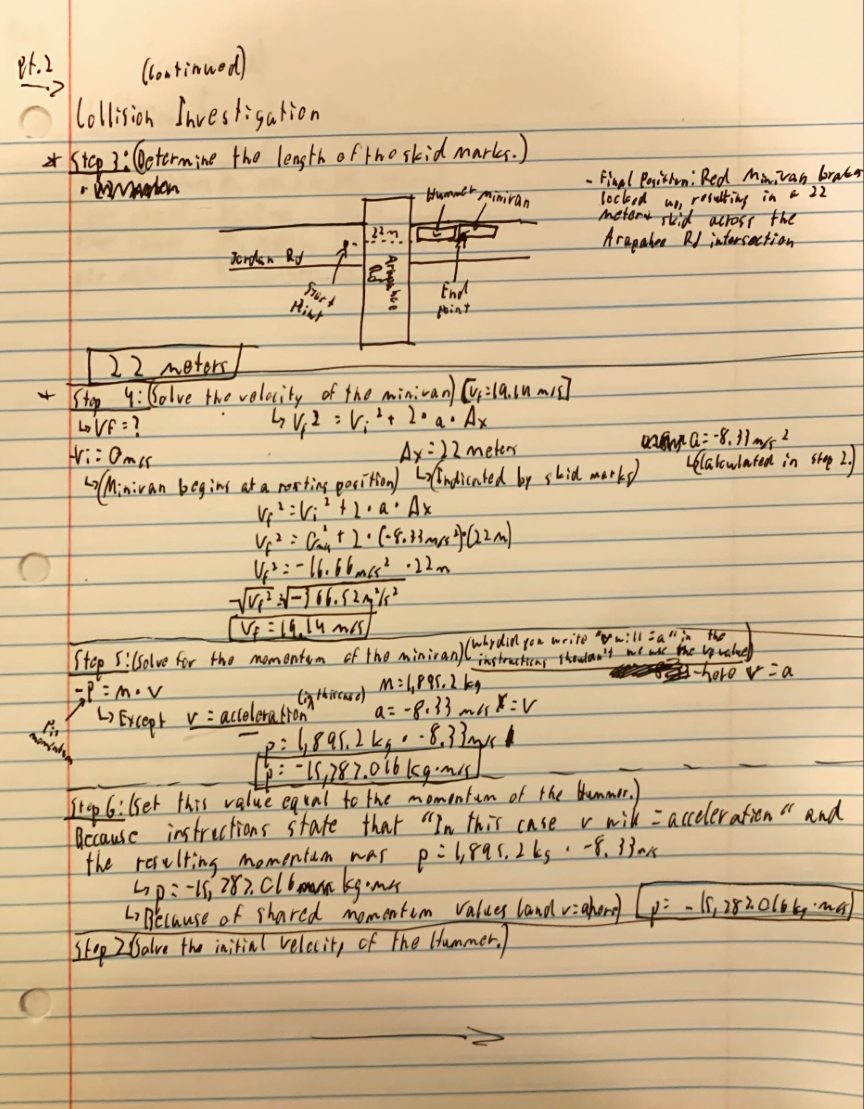 Pt.2 (Continued)
Collision Investigation
* Step 3: (Determine the length of the skid marks.)
- Final Position: Red Minivan brakes
locked up, resulting in a 22
meter skid across the
Arapahoe Rd intersection
Hummer minivan
22m
Jordan Rd
Arapahoe
Rd
Start
Point
End
Point
22 meters
* Step 4: (Solve the velocity of the minivan) [Vf=19.14 m/s]
↳ Vf=? ↳ Vf2 = Vi² + 2 · a · Δx
-Vi = 0m/s Δx = 22 meters a = -8.33 m/s²
↳(Minivan begins at a resting position) ↳(Indicated by skid marks) ↳(Calculated in step 2.)
Vf² = Vi² + 2 · a · Δx
Vf² = 0m/s² + 2 · (-8.33m/s²)·(22m)
Vf² = -16.66m/s² · 22m
√Vf² = √-366.52m²/s²
Vf = 19.14 m/s
Step 5: (Solve for the momentum of the minivan) (why did you write "v will = a" in the
instructions shouldn't we use the Vf value)
-here v = a
-P = m · v (in this case) m = 1,895.2 kg
↳ Except v = acceleration a = -8.33 m/s = V
P is
momentum
p = 1,895.2 kg · -8.33m/s
p = -15,787.016 kg·m/s
Step 6: (Set this value equal to the momentum of the Hummer.)
Because instructions state that "In this case v will = acceleration" and
the resulting momentum was p = 1,895.2 kg · -8.33m/s
↳ p = -15,787.016 kg·m/s
↳ Because of shared momentum values (and v=a here) p = -15,787.016 kg·m/s
Step 7 (Solve the initial velocity of the Hummer.)